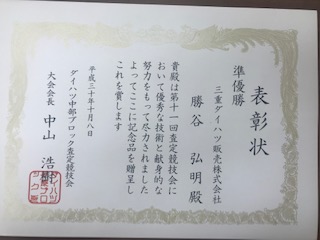 表彰状
準優勝
三重ダイハツ販売株式会社
勝谷 弘明殿
貴殿は第十一回査定競技会に
おいて優秀な技術と献身的な
努力をもって尽力されました
よってここに記念品を贈呈し
これを賞します
平成三十年十月八日
ダイハツ中部ブロック査定競技会
大会会長 中山 浩